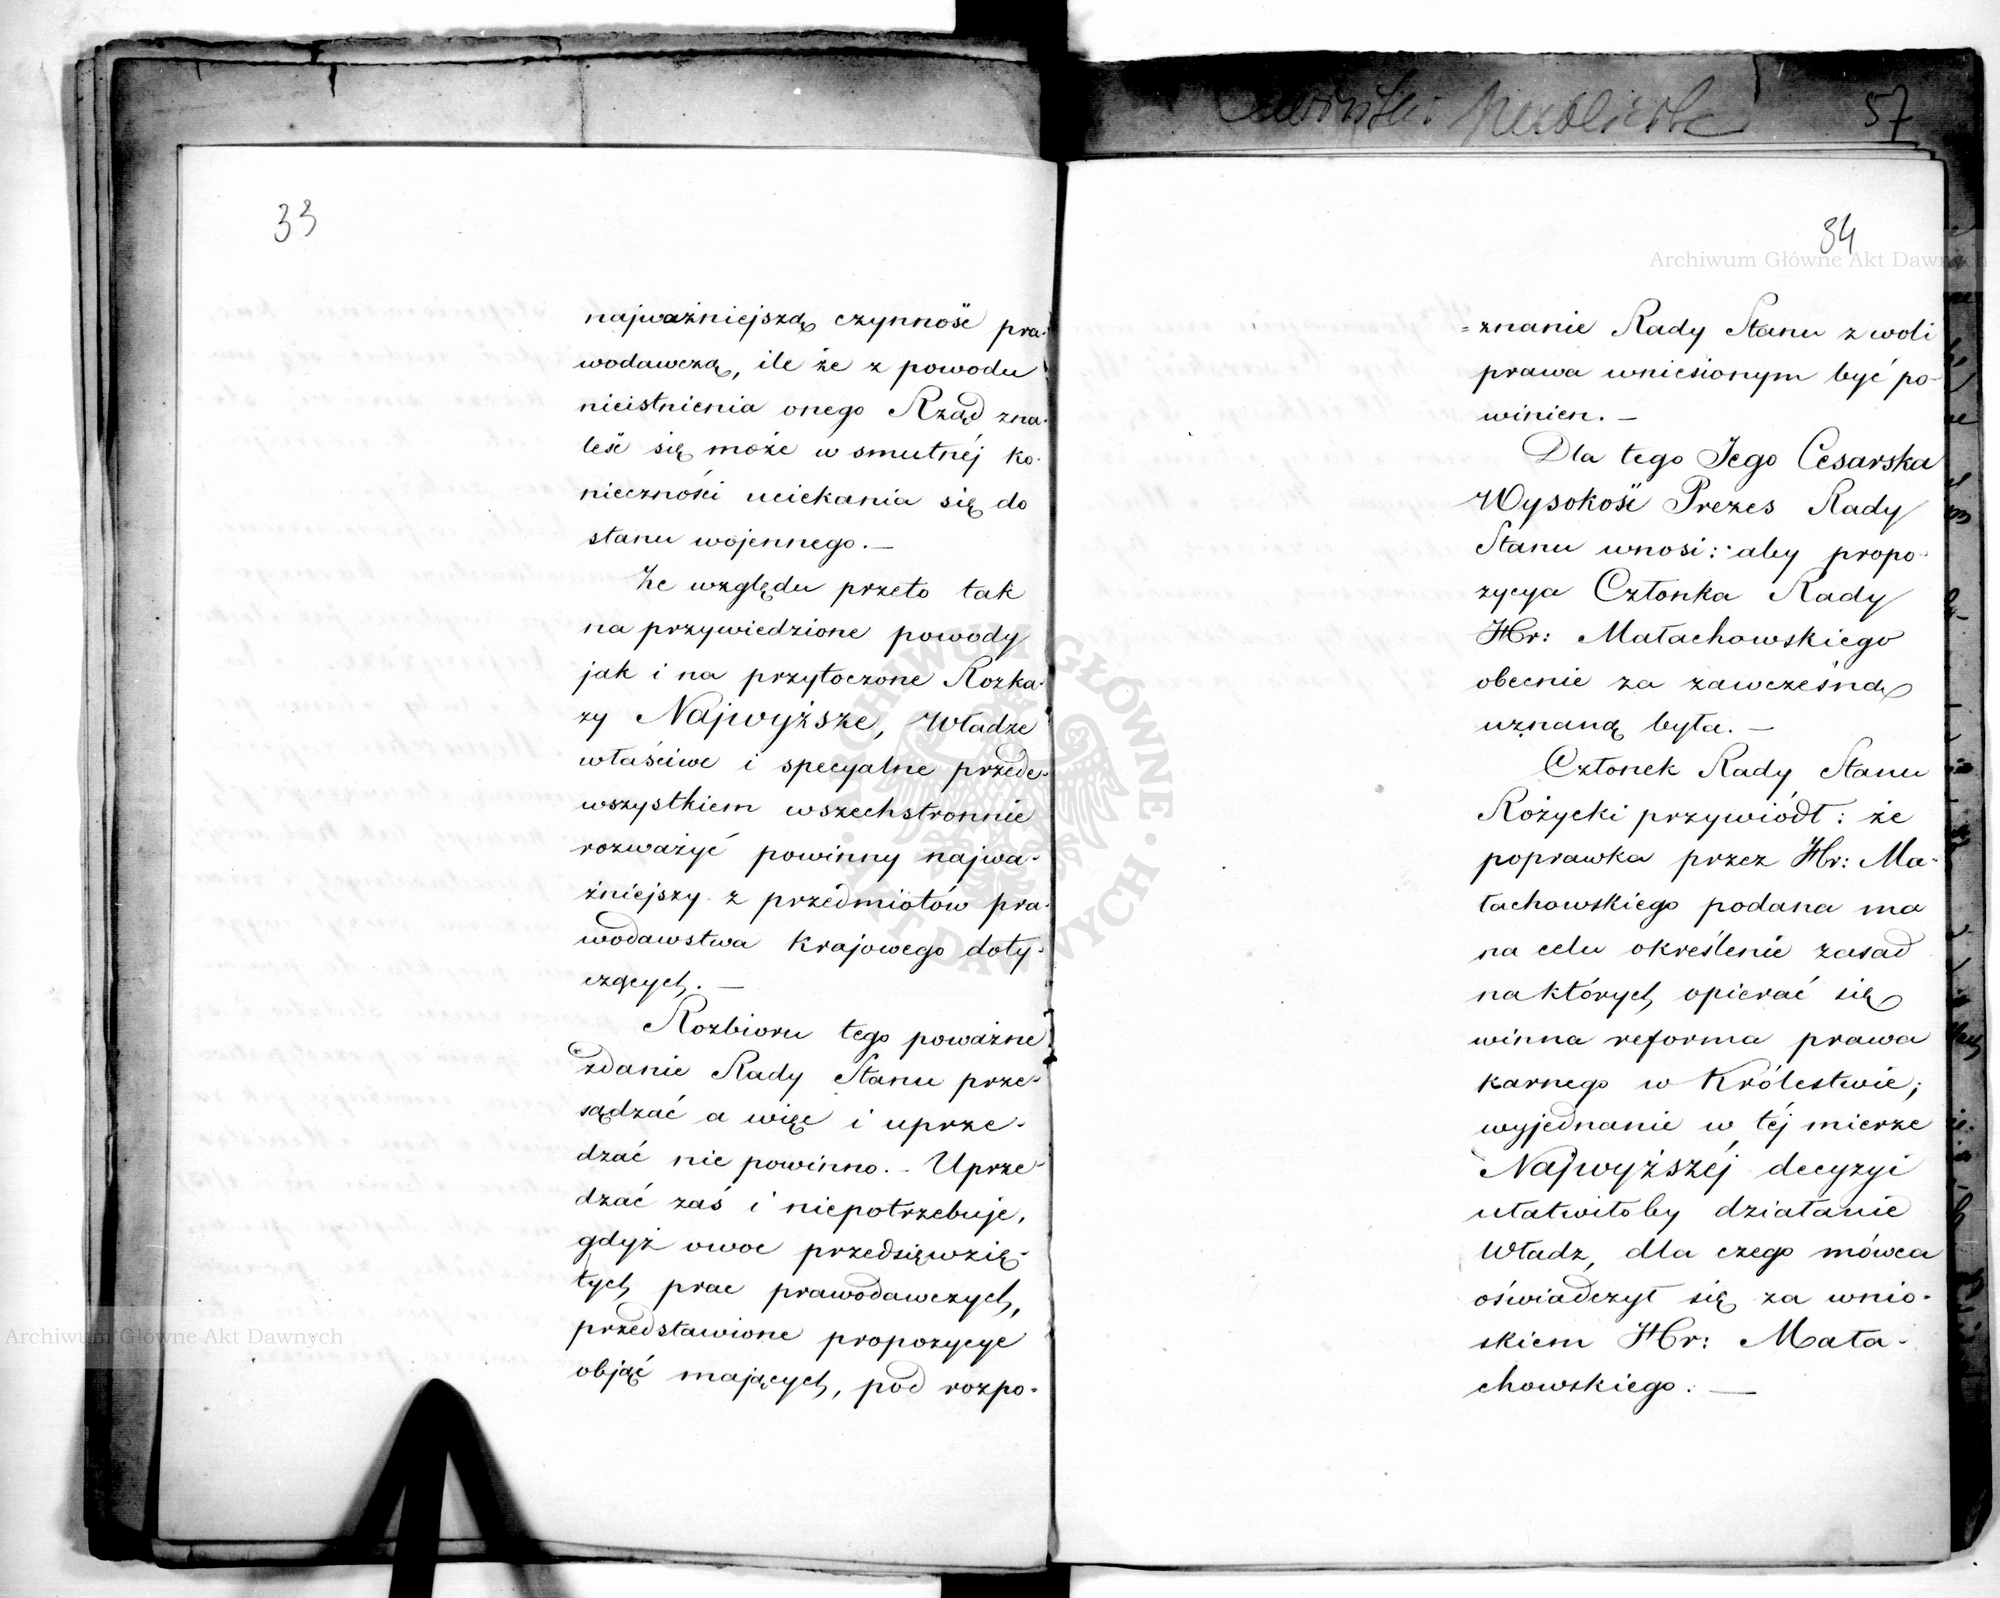 33
najważniejszą czynność pra-
wodawczą, ile że z powodu
nieistnienia onego Rząd zna-
leść się może w smutnéj ko-
nieczności uciekania się do
stanu wojennego. —
Ze względu przeto tak
na przywiedzione powody
jak i na przytoczone Rozka-
zy Najwyższe, Władze
właściwe i specyalne przede-
wszystkiem wszechstronnie
rozważyć powinny najwa-
żniejszy z przedmiotów pra-
wodawstwa Krajowego doty-
czących. —
Rozbioru tego poważne
zdanie Rady Stanu prze-
sądzać a więc i uprze-
dzać nie powinno. - Uprze-
dzać zaś i niepotrzebuje,
gdyż owoc przedsięwzię-
tych prac prawodawczych,
przedstawione propozycye
objąć mających, pod rozpo-
57
34
=znanie Rady Stanu z woli
prawa wniesionym być po-
winien. —
Dla tego Jego Cesarska
Wysokość Prezes Rady
Stanu wnosi: aby propo-
zycya Członka Rady
Hr: Małachowskiego
obecnie za zawcześną
uznaną była. —
Członek Rady Stanu
Rożycki przywiódł: że
poprawka przez Hr: Ma-
łachowskiego podana ma
na celu określenie zasad
na których opierać się
winna reforma prawa
karnego w Królestwie;
wyjednanie w téj mierze
Najwyższéj decyzyi
ułatwiłoby działanie
Władz, dla czego mówca
oświadczył się za wnio-
skiem Hr: Mała-
chowskiego. —
Archiwum Główne Akt Dawnych
Archiwum Główne Akt Dawnych
ARCHIWUM GŁÓWNE · AKT DAWNYCH ·